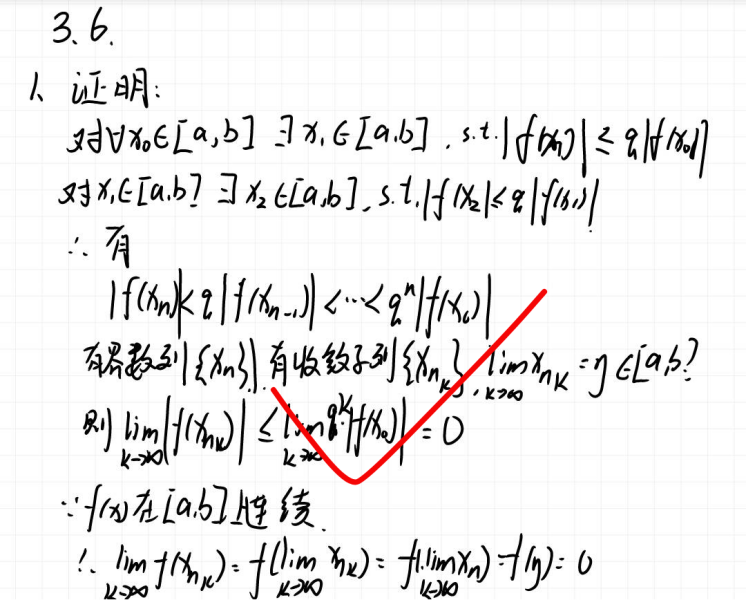 3.6.
1、证明:
对∀x₀∈[a,b] ∃x₁∈[a,b], s.t.|f(x₁)|≤q|f(x₀)|
对x₁∈[a,b] ∃x₂∈[a,b], s.t.|f(x₂)|≤q|f(x₁)|
∴有
|f(xₙ)|<q|f(xₙ₋₁)|<…<qⁿ|f(x₀)|
有界数列{xₙ}有收敛子列{xₙₖ}, lim_{k→∞} xₙₖ=η∈[a,b]
则 lim_{k→∞}|f(xₙₖ)|≤lim_{k→∞} qᵏ|f(x₀)|=0
∵f(x)在[a,b]上连续.
∴ lim_{k→∞} f(xₙₖ)=f(lim_{k→∞} xₙₖ)=f(lim_{k→∞} xₙ)=f(η)=0